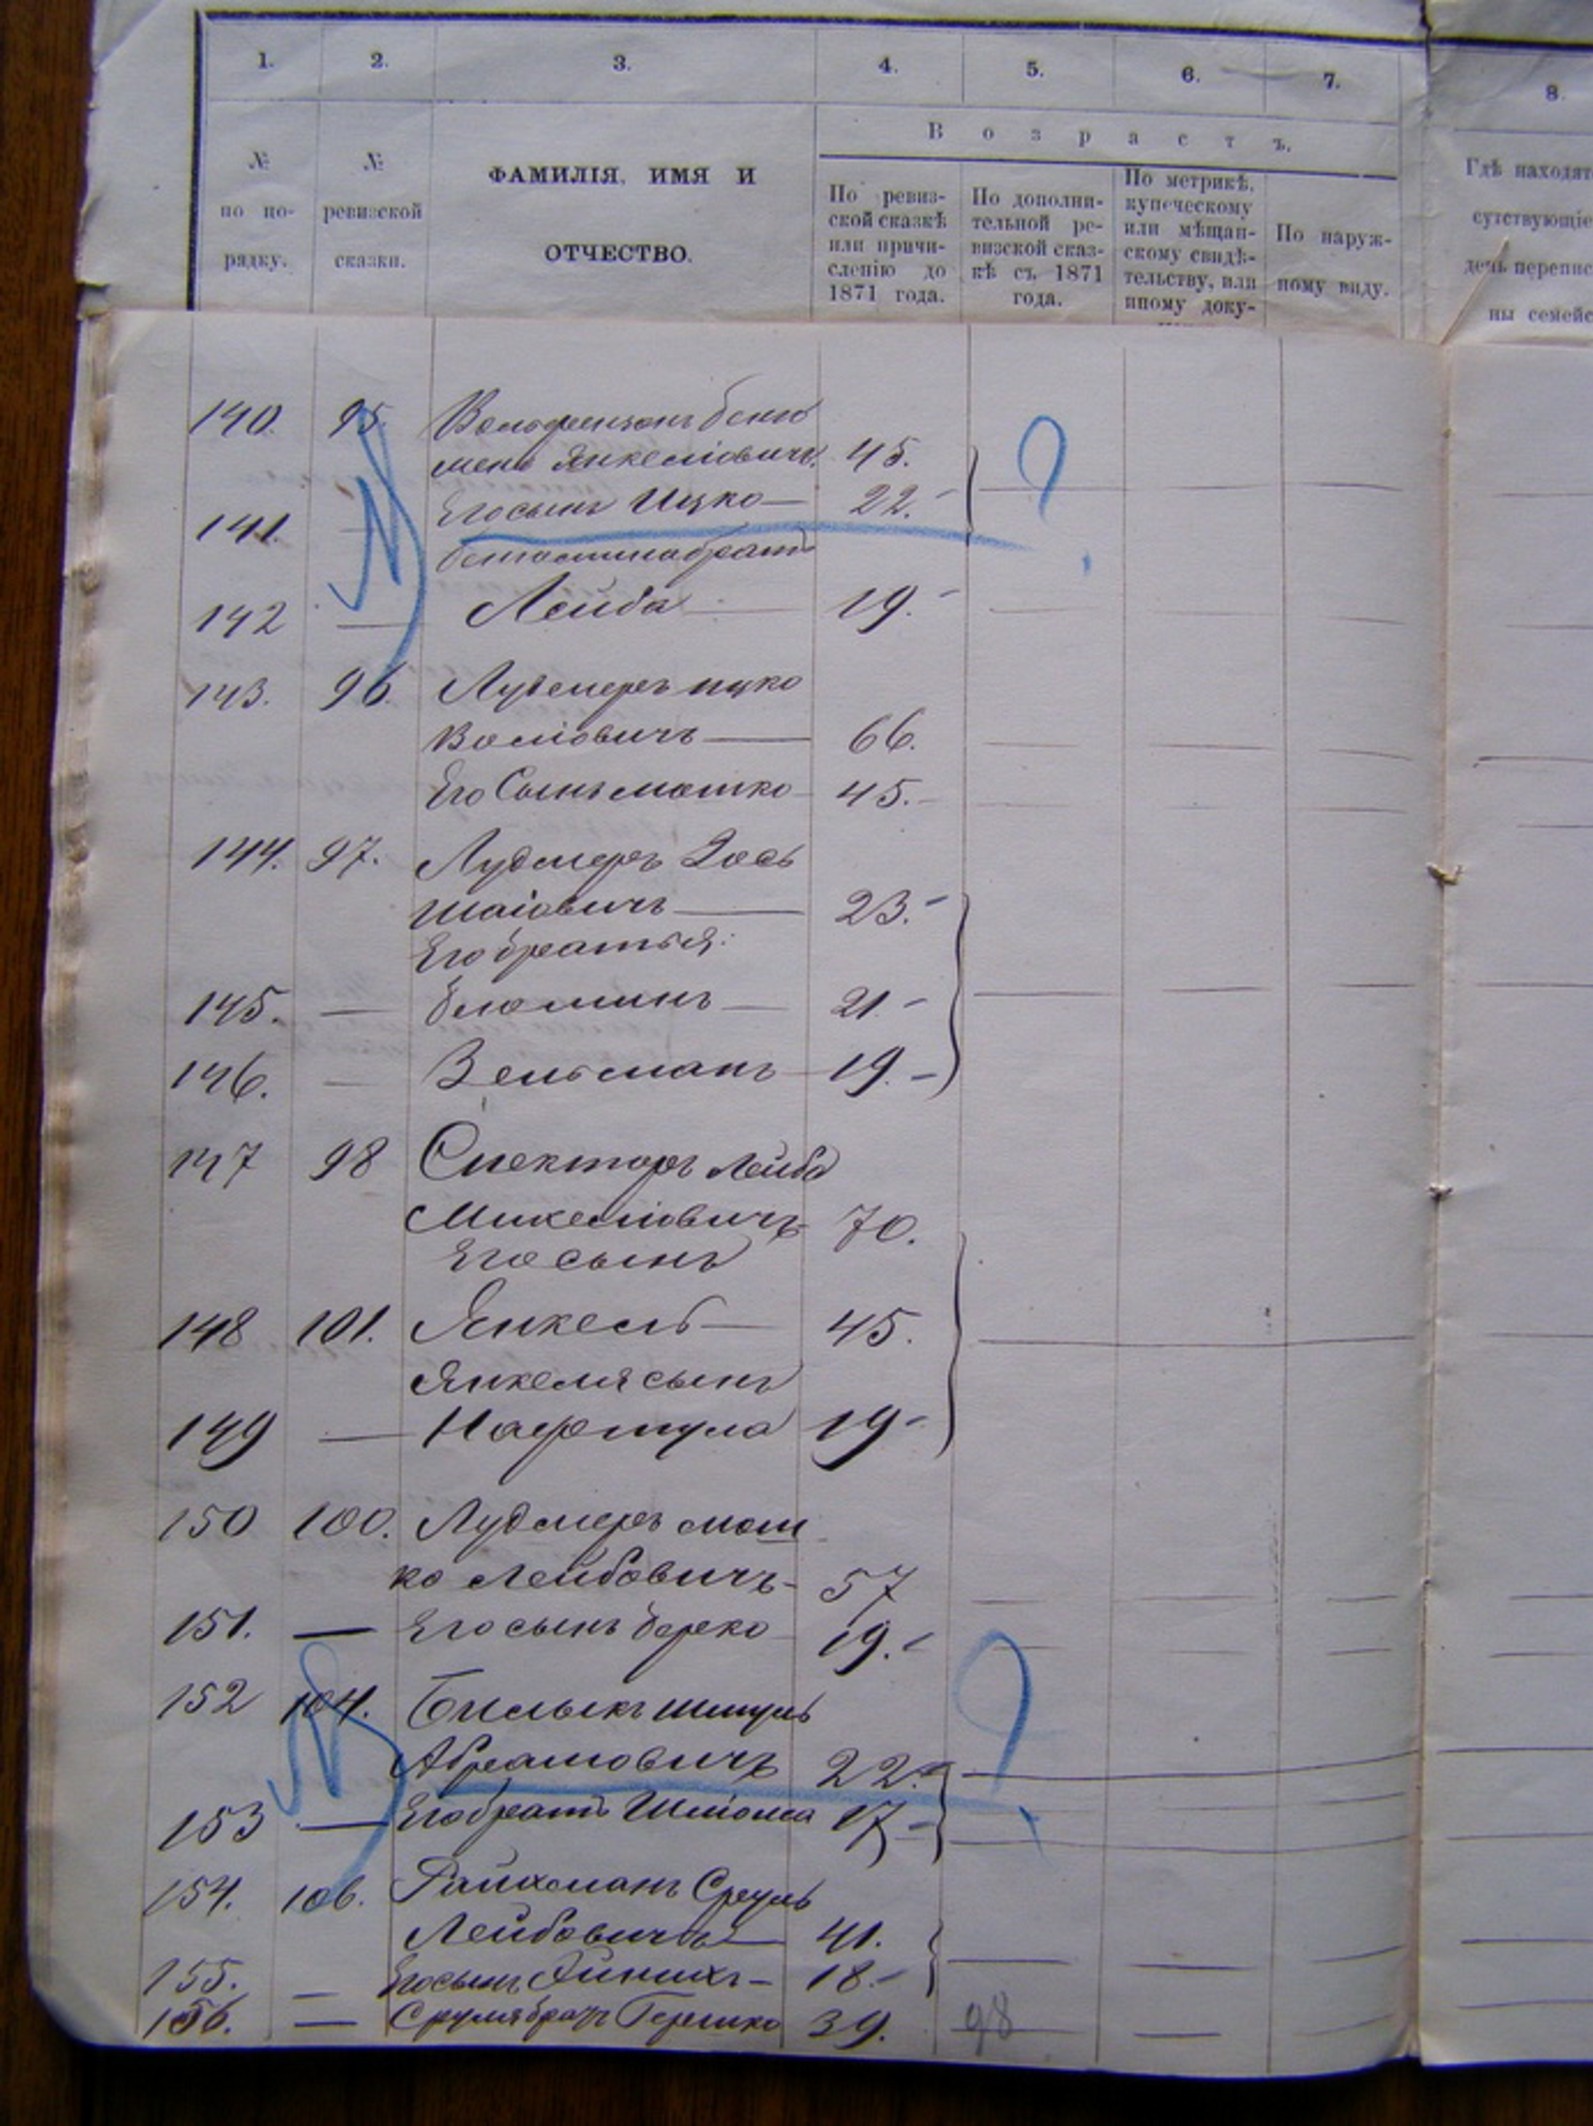 1. 2. 3. 4. 5. 6. 7. 8.
№ по по-рядку.
№ ревизской сказки.
ФАМИЛІЯ, ИМЯ И
ОТЧЕСТВО.
Возрастъ.
По ревиз-
ской сказкѣ
или причи-
сленію до
1871 года.
По дополни-
тельной ре-
визской сказ-
кѣ съ 1871
года.
По метрикѣ,
купеческому
или мѣщан-
скому свидѣ-
тельству, или
иному доку-
По наруж-
ному виду.
Гдѣ находят
сутствующіе
день перепис
ны семейс
140. 95. Вольфензонъ Бень
мень Янкеліовичъ 45.
141. — Его сынъ Ицко — 22. ?
Беньомина братъ
142 — Лейба — 19.
143. 96. Лудмеръ Ицко
Воліовичъ — 66.
Его Сынъ Мошко 45.
144. 97. Лудмеръ Іось
Шаіовичъ — 23.
Его братья:
145. — Беюминъ — 21.
146. — Зельманъ 19.
147 98 Спекторъ Лейба
Михеліовичъ 70.
Его сынъ
148 101. Янкель — 45.
Янкеля сынъ
149 — Нафтула 19
150 100. Лудмеръ Мош
ко Лейбовичъ 57
151. — Его сынъ Берко 19.
152 104. Билыкъ Шмуль
Абрамовичъ 22. ?
153 — Его братъ Шліома 17
154. 106. Райхманъ Сруль
Лейбовичъ — 41.
155. — Его сынъ 18.
156. — Сруля братъ Гершко 39. 98